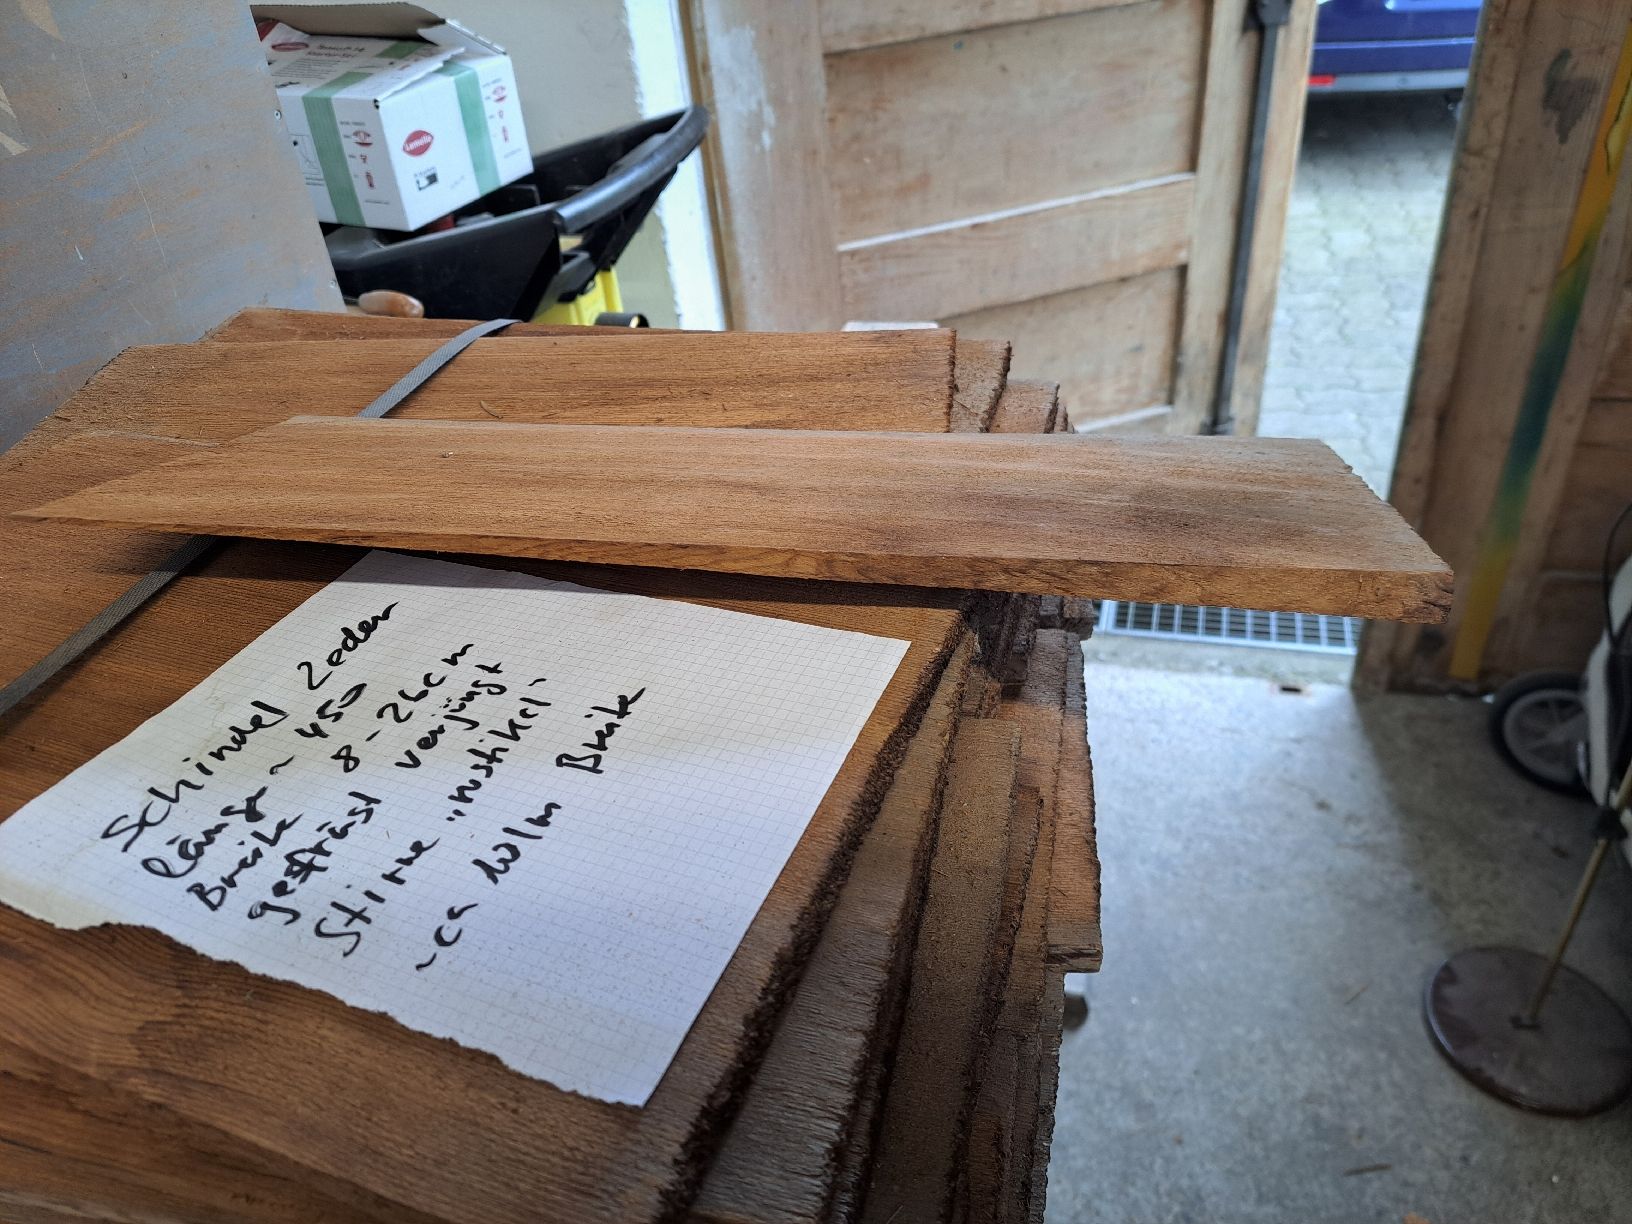 Lamello
Schindel Zeder
Länge ~ 450
Breite 8-26cm
gefräst verjüngt
Stirne "rustikal"
~ca lolm Breite